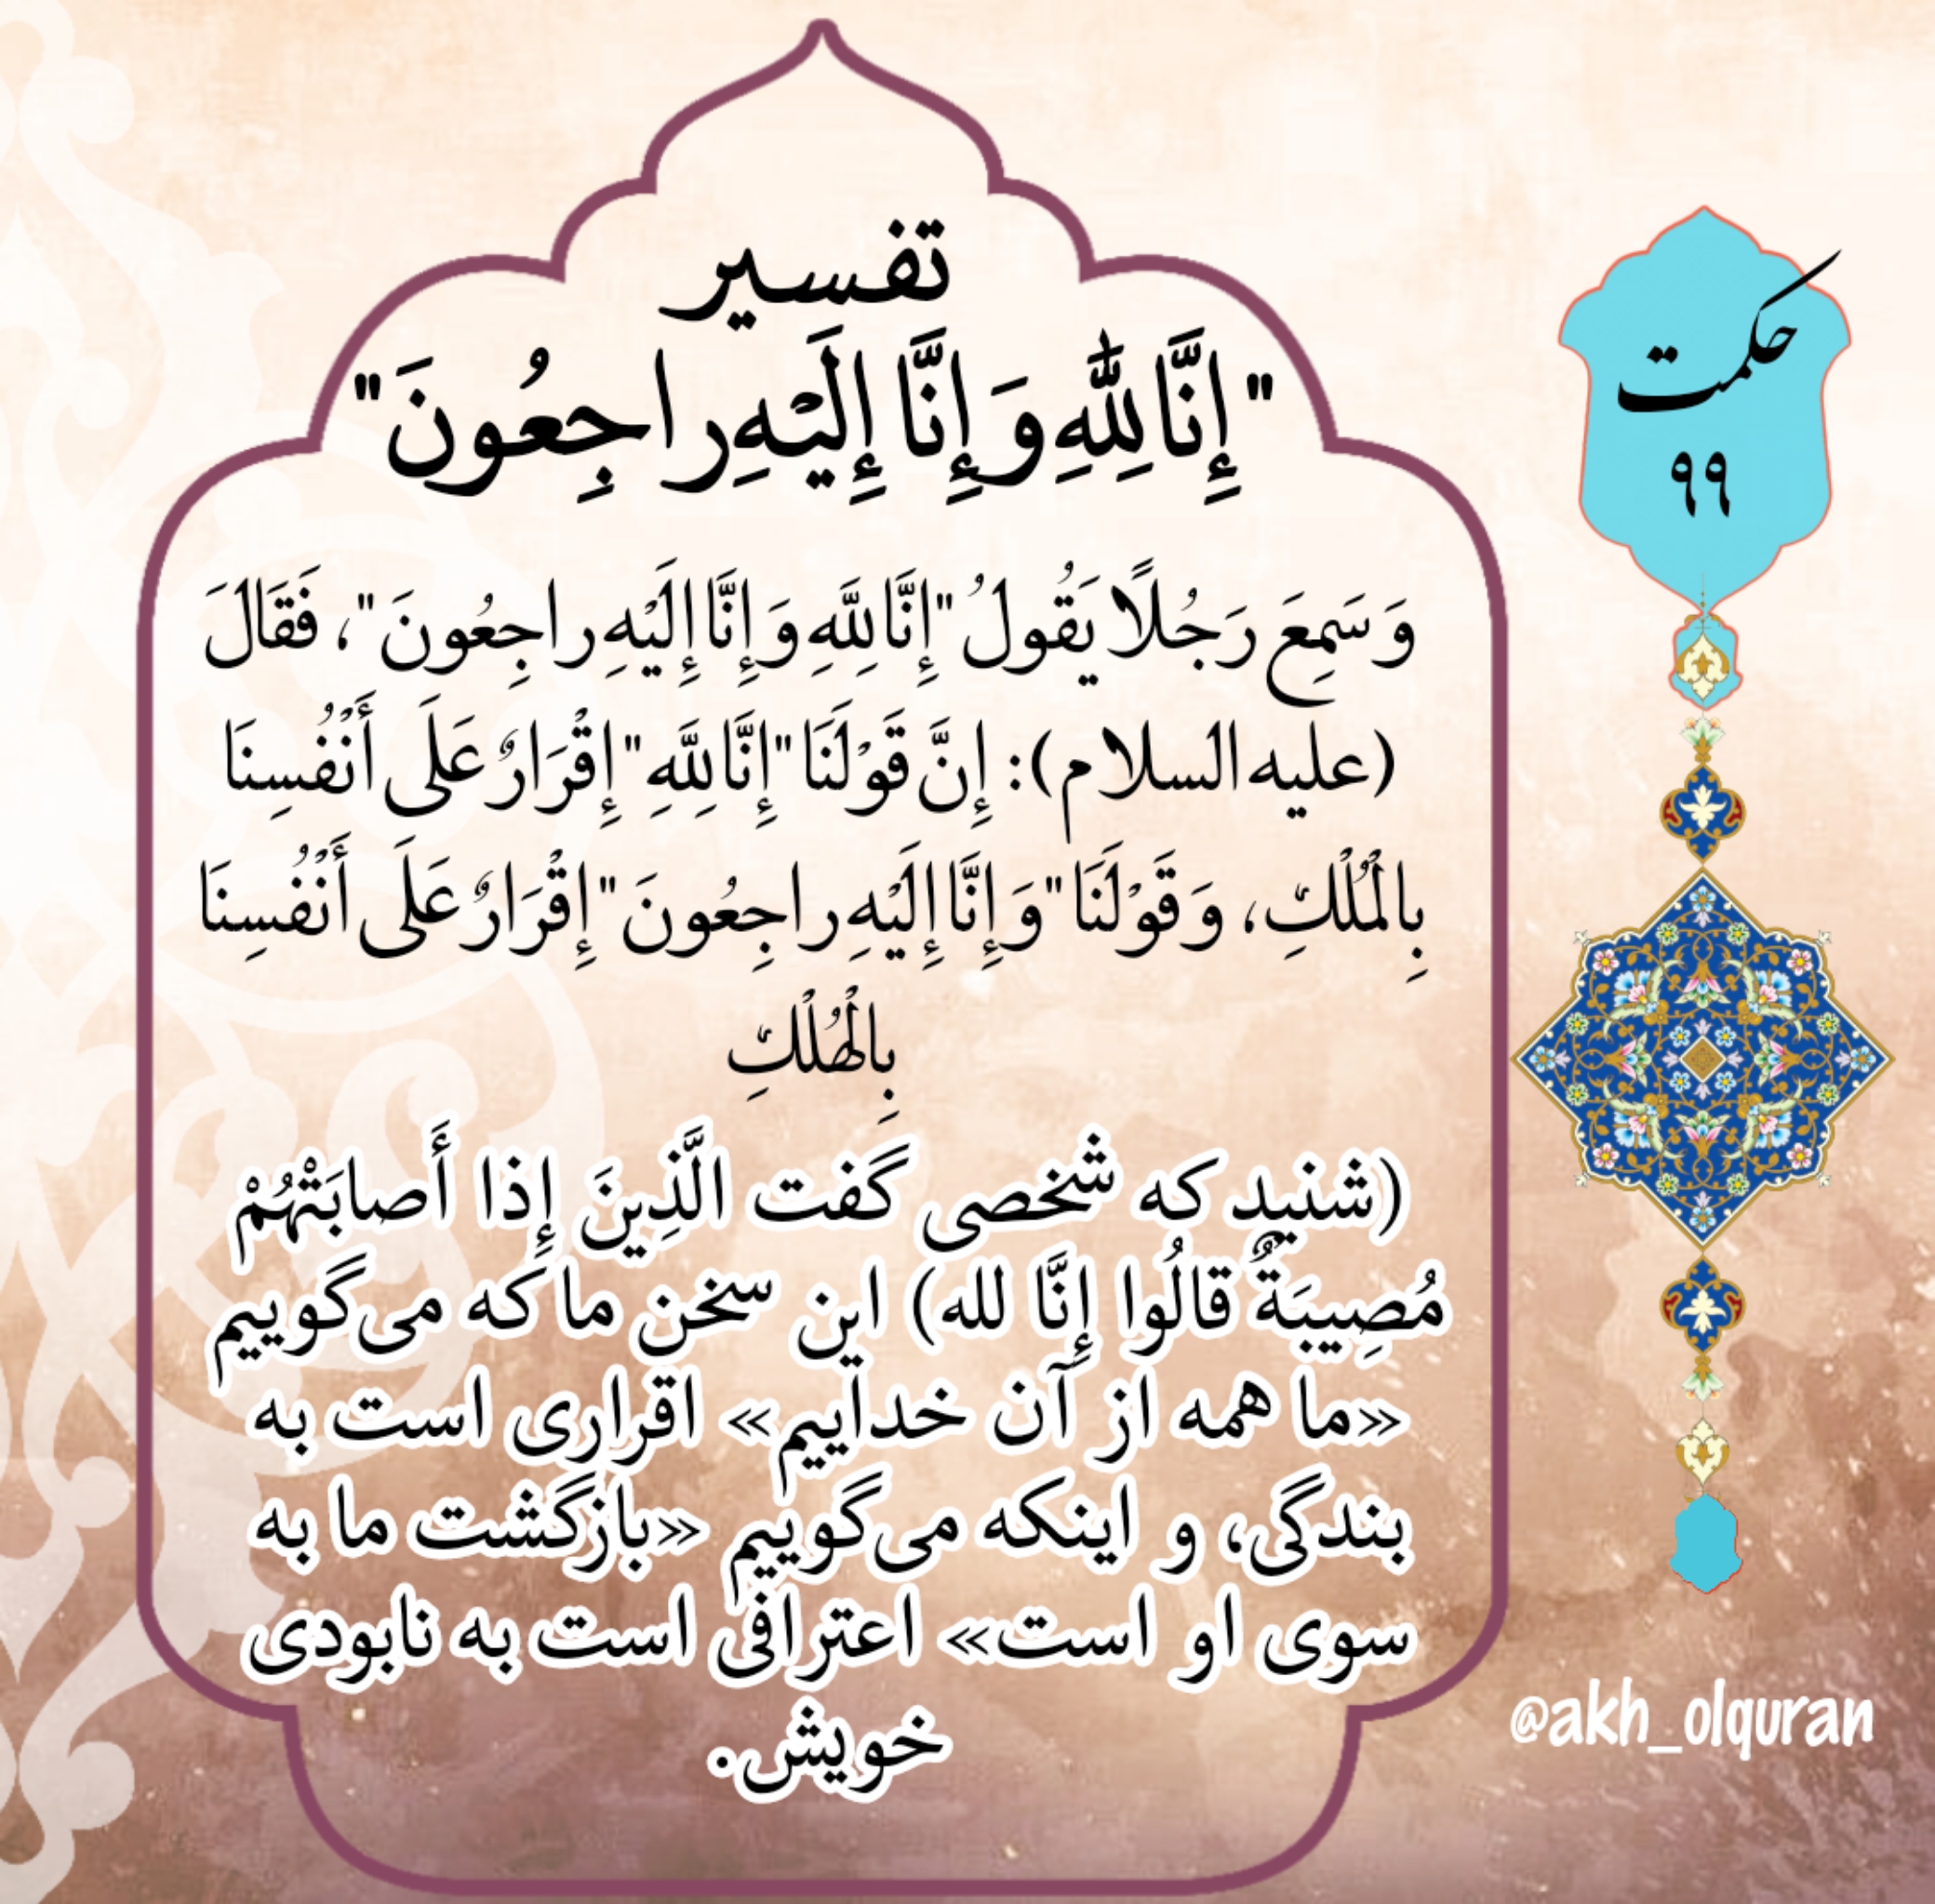 تفسیر
"إِنَّا لِلَّهِ وَ إِنَّا إِلَیْهِ راجِعُونَ"
حکمت
۹۹
وَ سَمِعَ رَجُلًا یَقُولُ "إِنَّا لِلَّهِ وَ إِنَّا إِلَیْهِ راجِعُونَ"، فَقَالَ
(علیه السلام): إِنَّ قَوْلَنَا "إِنَّا لِلَّهِ" إِقْرَارٌ عَلَی أَنْفُسِنَا
بِالْمُلْکِ، وَ قَوْلَنَا "وَ إِنَّا إِلَیْهِ راجِعُونَ" إِقْرَارٌ عَلَی أَنْفُسِنَا
بِالْهُلْکِ
(شنید که شخصی گفت الَّذِینَ إِذا أَصابَتْهُمْ
مُصِیبَةٌ قالُوا إِنَّا لله) این سخن ما که می‌گوییم
«ما همه از آن خداییم» اقراری است به
بندگی، و اینکه می‌گوییم «بازگشت ما به
سوی او است» اعترافی است به نابودی
خویش.
@akh_olquran